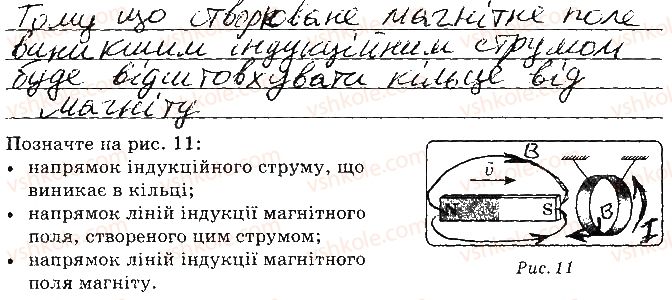 Тому що створюване магнітне поле
виникшим індукційним струмом
буде відштовхувати кільце від
магніту
Позначте на рис. 11:
• напрямок індукційного струму, що
виникає в кільці;
• напрямок ліній індукції магнітного
поля, створеного цим струмом;
• напрямок ліній індукції магнітного
поля магніту.
B
υ
N S
B
I
Рис. 11
vshkole.com